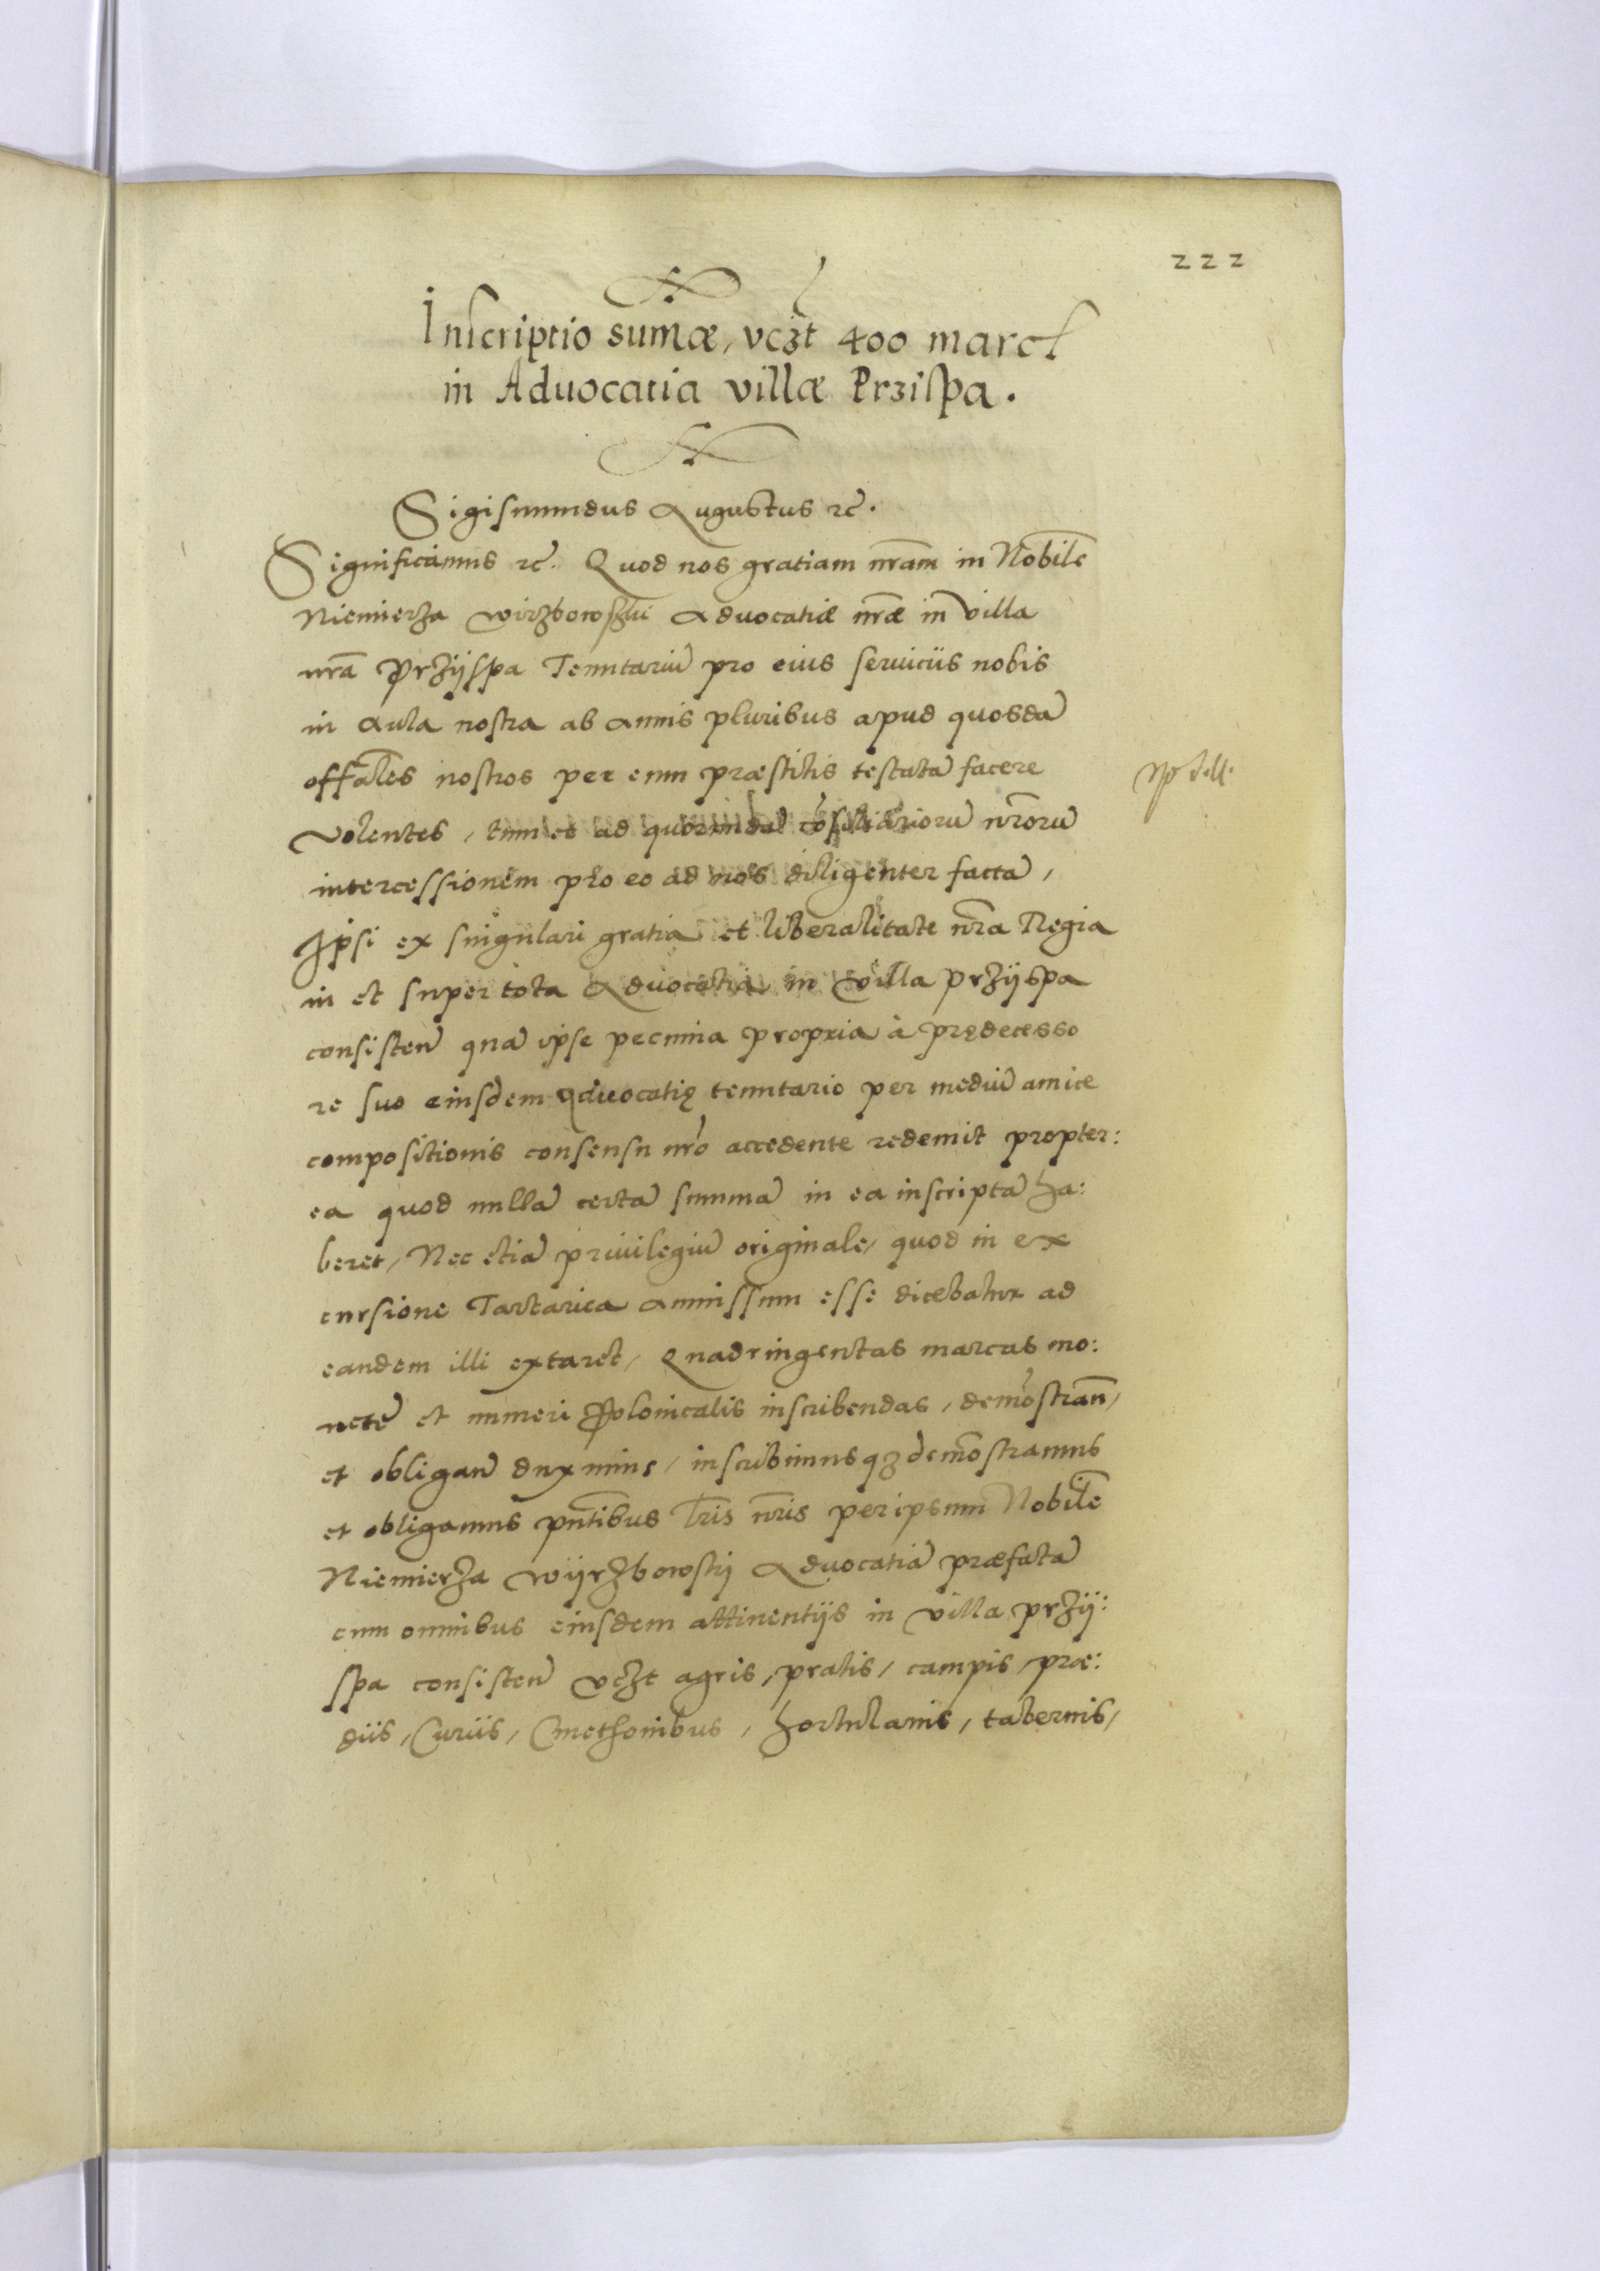 222
Inscriptio sum̄æ, vcȝt 400 marc
in Aduocatia villæ Przispa.
Sigismundus Augustus rc̄.
Significamus rc̄. Quod nos gratiam nr̄am in Nobilē
Niemierza Wirzbowszki Aduocatiæ nr̄æ in villa
nr̄a Przÿspa Tenutariū pro eius seruiciis nobis
in Aula nostra ab annis pluribus apud quosdā
offāles nostros per eum præstitis testatā facere
volentes, tum et ad quorundā cōsiliariorū nr̄orū
intercessionem pro eo ad nos diligenter factā,
Ipsi ex singulari gratia et liberalitate nr̄a Regia
in et super tota Aduocatia in villa Przÿspa
consisteñ quā ipse pecunia propria à prędecesso
re suo eiusdem Aduocatię tenutario per mediū amice
compositionis consensu nr̄o accedente redemit propter:
ea quod nullā certā summā in ea inscriptā ha:
beret, Nec etiā priuilegiū originale, quod in ex
cursione Tartarica amissum esse dicebatur ad
eandem illi extaret, Quadringentas marcas mo:
netę et numeri Polonicalis inscribendas, demōstrañ,
et obligañ duximus, inscribimusqȝ demōstramus
et obligamus pñtibus lr̄is nr̄is per ipsum Nobilē
Niemierza Wÿrzbowskÿ Aduocatiā præfatā
cum omnibus eiusdem attinentÿs in villa Przÿ:
spa consisteñ vcȝt agris, pratis, campis, præ:
diis, Curiis, Cmethonibus, hortulanis, tabernis,